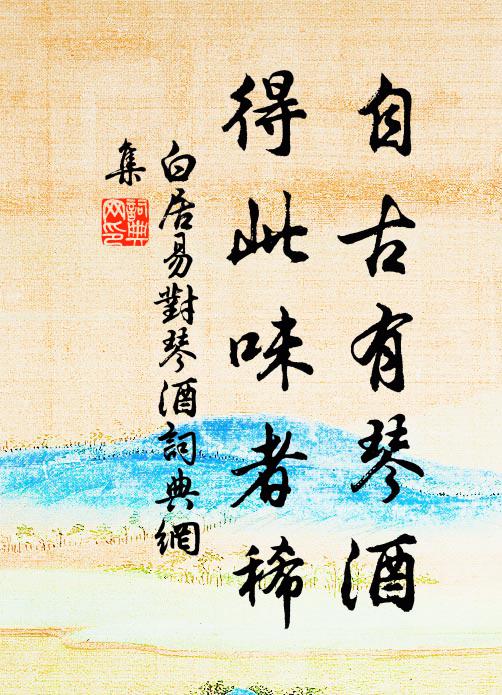 自古有琴酒
得此味者稀
白居易對琴酒詞典網
集
詞典
网印